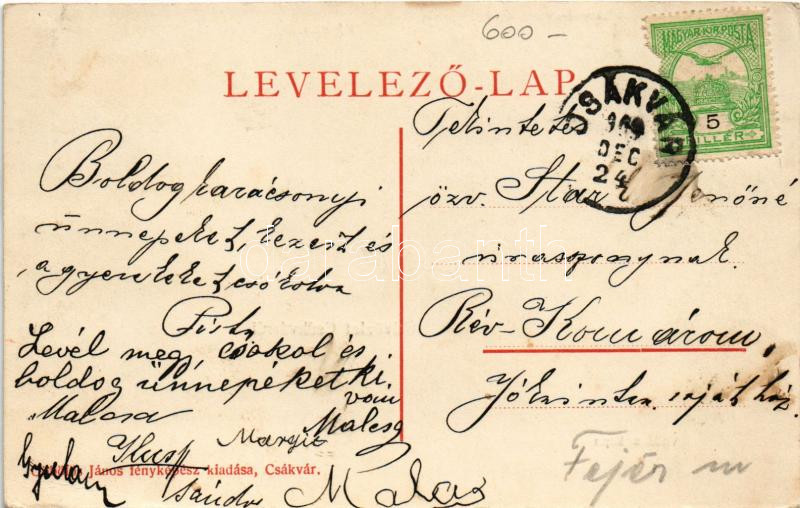 600-
LEVELEZŐ-LAP
MAGYAR KIR. POSTA
5
FILLÉR
CSÁKVÁR
909
DEC
24
Boldog karácsonyi
ünnepeket, kezeit és
a gyerekeket csókolva
Pista
Levél meg, csokol és
boldog ünnepéket ki.
vom
Malcsa
Malcsa
Margit
Ilus
Gyula
Sándor
János fényképész kiadása, Csákvár.
Tekintetes
özv. Jenőné
úrasszonynak.
Rév-Komárom,
saját ház.
Fejér m
darabanth